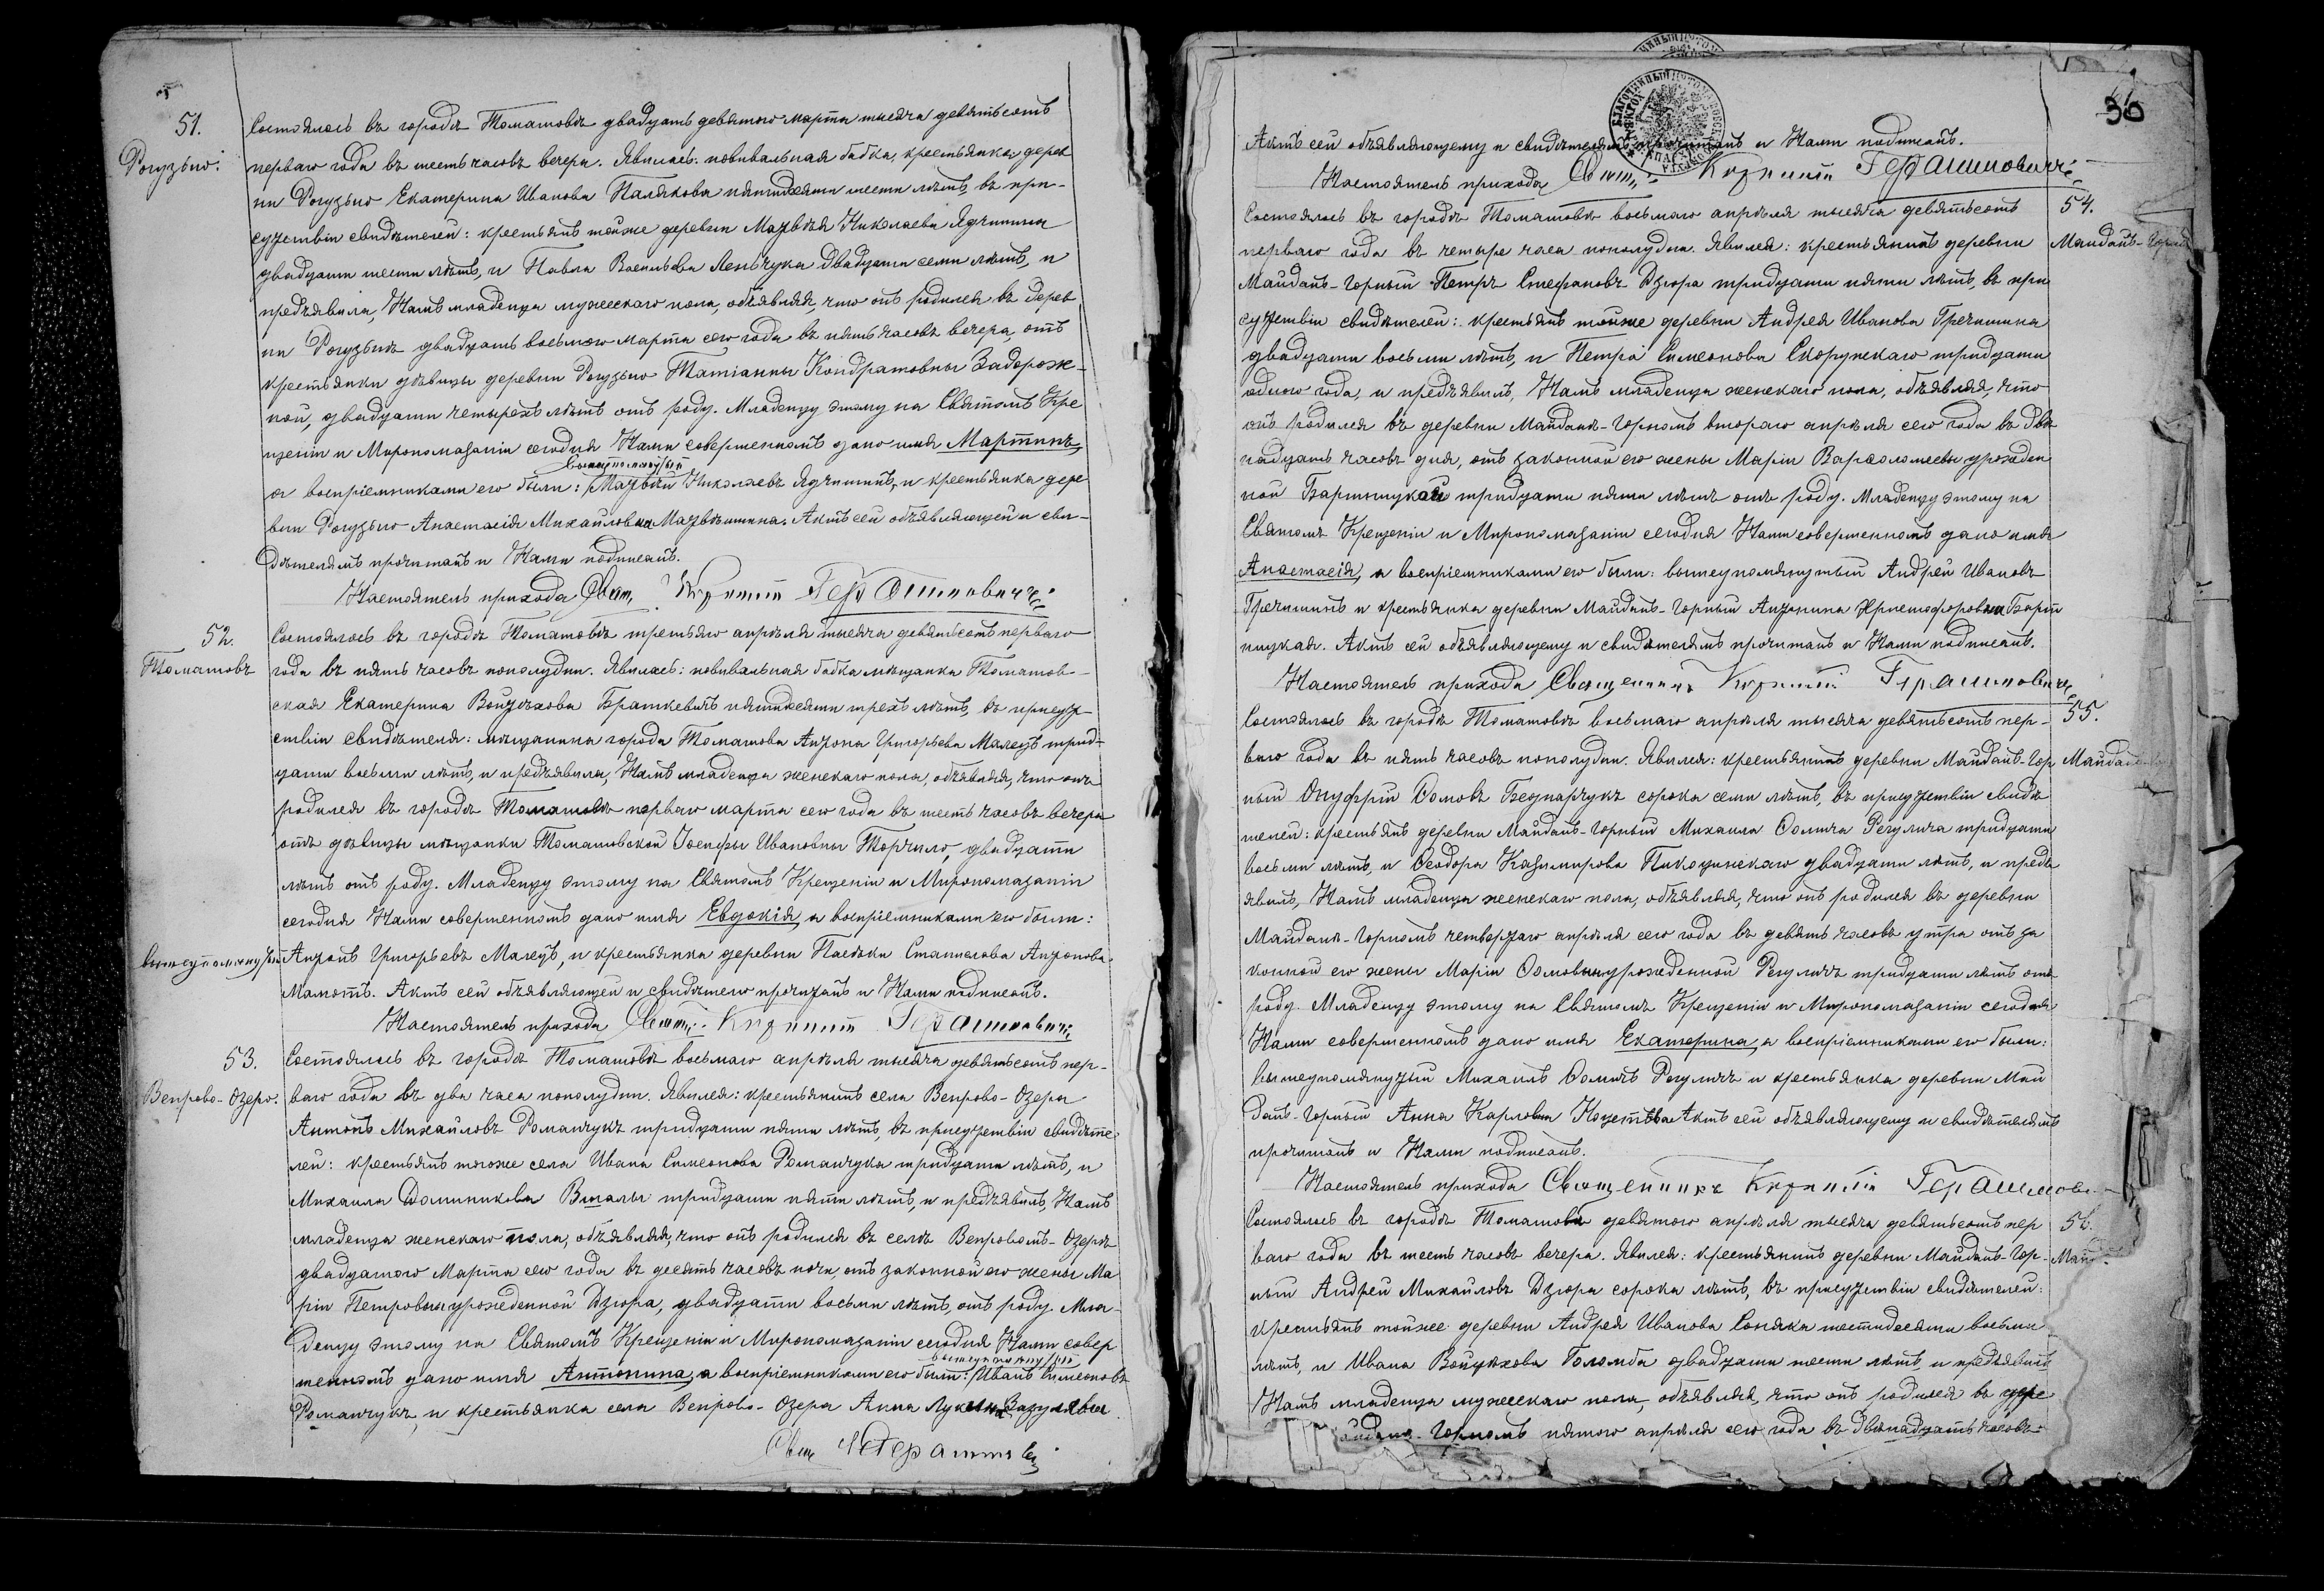 51.
Рогузьно.
Состоялось въ городѣ Томашовѣ двадцать девятого марта тысяча девятьсотъ
перваго года въ шесть часовъ вечера. Явилась: повивальная бабка, крестьянка дерев
ни Рогузьно Екатерина Иванова Палякова пятидесяти шести лѣтъ, въ при-
сутствіи свидѣтелей: крестьянъ тойже деревни Матвѣя Николаева Ядчишина
двадцати шести лѣтъ, и Павла Васильева Леньчука двадцати семи лѣтъ, и
предъявила, Намъ младенца мужескаго пола, объявляя, что онъ родился въ дерев
ни Рогузьнѣ двадцать восьмого марта сего года въ пять часовъ вечера, отъ
крестьянки дѣвицы деревни Рогузьно Татіанны Кондратовны Задорож-
ной, двадцати четырехъ лѣтъ отъ роду. Младенцу этому на Святомъ Кре
щеніи и Миропомазаніи сегодня Нами совершенномъ дано имя Мартинъ,
вышеупомянутый
а воспріемниками его были: Матвѣй Николаевъ Ядчишинъ, и крестьянка дере
вни Рогузьно Анастасія Михайловна Матвѣишина. Актъ сей объявляющей и сви-
дѣтелямъ прочитанъ и Нами подписанъ.
Настоятель прихода Свящ. Герашимовичъ
52.
Томашовъ
Состоялось въ городѣ Томашовѣ третьяго апрѣля тысяча девятьсотъ перваго
года въ пять часовъ пополудни. Явилась: повивальная бабка мѣщанка Томашов-
ская Екатерина Войцѣхова Браткевичъ пятидесяти трехъ лѣтъ, въ присут-
ствіи свидѣтеля: мѣщанина города Томашова Антона Григорьева Малецъ трид-
цати восьми лѣтъ, и предъявила, Намъ младенца женскаго пола, объявляя, что онъ
родился въ городѣ Томашовѣ перваго марта сего года въ шесть часовъ вечера
отъ дѣвицы мѣщанки Томашовской Іосифы Ивановны Торчило, двадцати
лѣтъ отъ роду. Младенцу этому на Святомъ Крещеніи и Миропомазаніи
сегодня Нами совершенномъ дано имя Евдокія, а воспріемниками его были:
вышеупомянутый Антонъ Григорьевъ Малецъ, и крестьянка деревни Пасѣки Станислава Антонова
Мамотъ. Актъ сей объявляющей и свидѣтелю прочитанъ и Нами подписанъ.
Настоятель прихода Свящ. Герашимовичъ
53.
Вепрово-Озеро.
Состоялось въ городѣ Томашовѣ восьмаго апрѣля тысяча девятьсотъ пер-
ваго года въ два часа пополудни. Явился: крестьянинъ села Вепрово-Озера
Антонъ Михайловъ Романчукъ тридцати пяти лѣтъ, въ присутствіи свидѣте-
лей: крестьянъ тогоже села Ивана Симеонова Романчука тридцати лѣтъ, и
Михаила Доминикова Вшалы тридцати пяти лѣтъ, и предъявилъ, Намъ
младенца женскаго пола, объявляя, что онъ родился въ селѣ Вепровомъ-Озерѣ
двадцатого Марта сего года въ десять часовъ ночи, отъ законной его жены Ма
ріи Петровны урожденной Дзюра, двадцати восьми лѣтъ, отъ роду. Мла-
денцу этому на Святомъ Крещеніи и Миропомазаніи сегодня Нами совер
вышеупомянутый
шенномъ дано имя Антонина, а воспріемниками его были: Иванъ Симеоновъ
Романчукъ, и крестьянка села Вепрово-Озера Анна
Свящ. Герашимовичъ
30
Актъ сей объявляющему и свидѣтелямъ прочитанъ и Нами подписанъ.
Настоятель прихода Свящ. Герашимовичъ
54.
Майданъ-Горный
Состоялось въ городѣ Томашовѣ восьмаго апрѣля тысяча девятьсотъ
перваго года въ четыре часа пополудни. Явился: крестьянинъ деревни
Майданъ-Горный Петръ Стефановъ Дзюра тридцати пяти лѣтъ, въ при
сутствіи свидѣтелей: крестьянъ тойже деревни Андрея Иванова Гречишина
двадцати восьми лѣтъ, и Петра Симеонова Скорупскаго тридцати
одного года, и предъявилъ, Намъ младенца женскаго пола, объявляя, что
онъ родился въ деревни Майданѣ-Горномъ втораго апрѣля сего года въ двѣ
надцать часовъ дня, отъ законной его жены Маріи Варѳоломеевы урожден
ной Бартницкой тридцати пяти лѣтъ отъ роду. Младенцу этому на
Святомъ Крещеніи и Миропомазаніи сегодня Нами совершенномъ дано имя
Анастасія, а воспріемниками его были: вышеупомянутый Андрей Ивановъ
Гречишинъ и крестьянка деревни Майданъ-Горный Антонина Христофоровна Барт
ницкая. Актъ сей объявляющему и свидѣтелямъ прочитанъ и Нами подписанъ.
Настоятель прихода Священникъ Герашимовичъ
55.
Майданъ
Состоялось въ городѣ Томашовѣ восьмаго апрѣля тысяча девятьсотъ пер-
ваго года въ пять часовъ пополудни. Явился: крестьянинъ деревни Майданъ-Гор
ный Онуфрій Ѳомовъ Беднарчукъ сорока семи лѣтъ, въ присутствіи свидѣ
телей: крестьянъ деревни Майданъ-Горный Михаила Ѳомича Регулича тридцати
восьми лѣтъ, и Ѳеодора Казимирова двадцати лѣтъ, и предъ
явилъ, Намъ младенца женскаго пола, объявляя, что онъ родился въ деревни
Майданѣ-Горномъ четвертаго апрѣля сего года въ девять часовъ утра отъ за
конной его жены Маріи Ѳомовны урожденной Регуличъ тридцати лѣтъ отъ
роду. Младенцу этому на Святомъ Крещеніи и Миропомазаніи сегодня
Нами совершенномъ дано имя Екатерина, а воспріемниками его были:
вышеупомянутый Михаилъ Ѳомичъ Регуличъ и крестьянка деревни Май
данъ-Горный Анна Карловна Актъ сей объявляющему и свидѣтелямъ
прочитанъ и Нами подписанъ.
Настоятель прихода Священникъ Герашимович
56.
Майд
Состоялось въ городѣ Томашовѣ девятого апрѣля тысяча девятьсотъ пер
ваго года въ шесть часовъ вечера. Явился: крестьянинъ деревни Майданъ-Гор-
ный Андрей Михайловъ Дзюра сорока лѣтъ, въ присутствіи свидѣтелей:
крестьянъ тойже деревни Андрея Иванова Соняка шестидесяти восьми
лѣтъ, и Ивана Войцѣхова Голомба двадцати шести лѣтъ и предъявилъ
Намъ младенца мужескаго пола, объявляя, что онъ родился въ дере
йданѣ-Горномъ пятого апрѣля сего года въ двѣнадцать часовъ